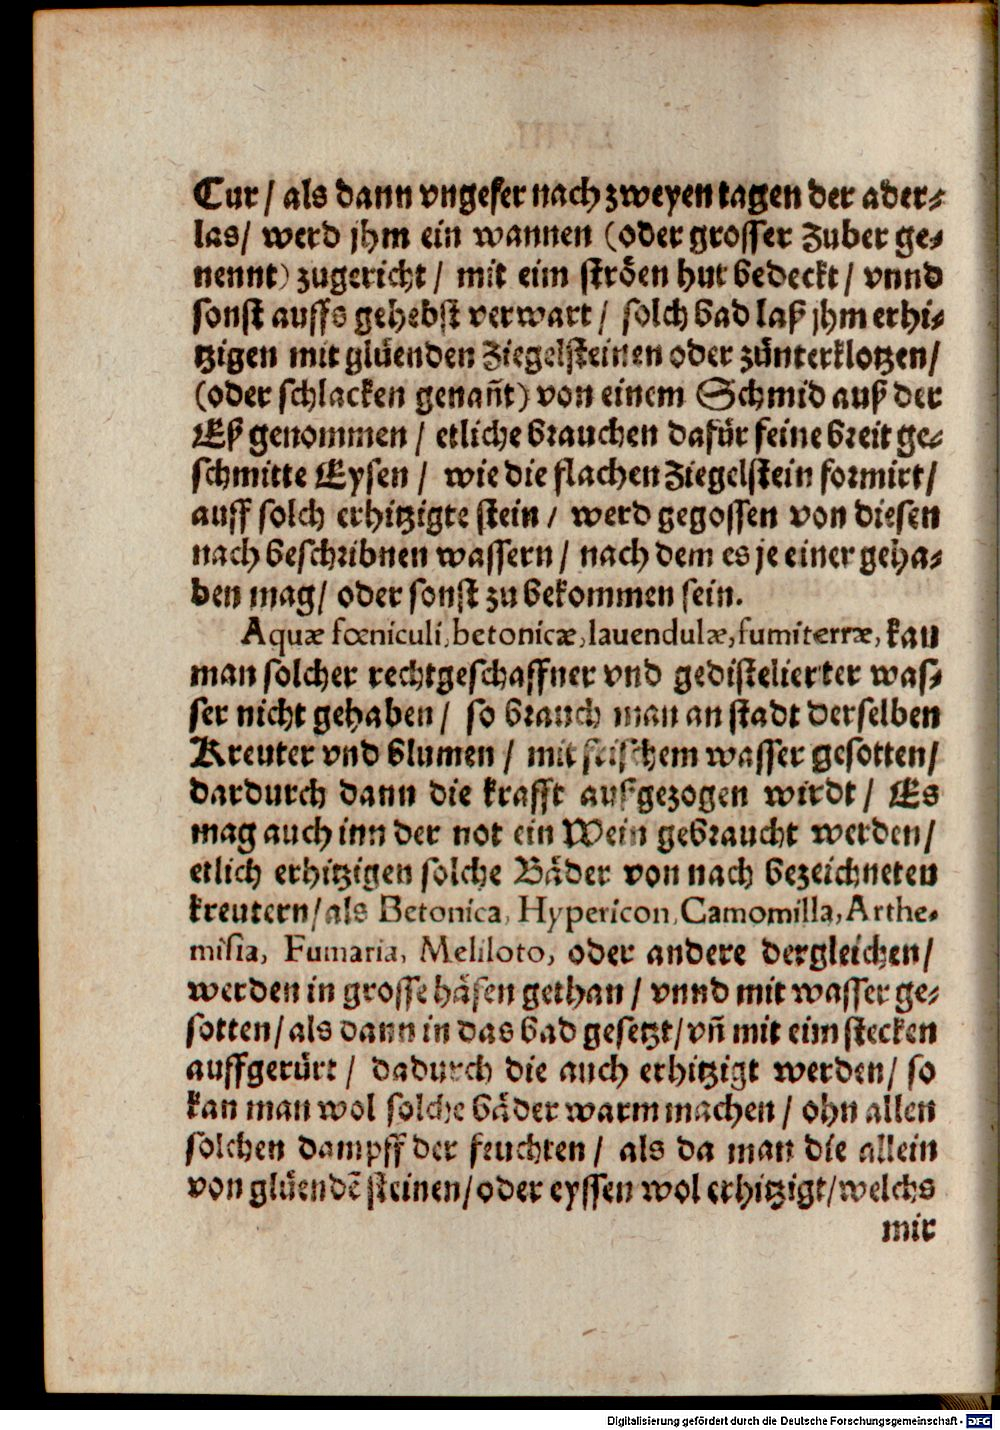 Cur / als dann vngefer nach zweyen tagen der ader⸗
las / werd jhm ein wannen (oder grosser Zuber ge⸗
nennt) zugericht / mit eim ströen hut bedeckt / vnnd
sonst auffs gehebst verwart / solch bad laß jhm erhi⸗
tzigen mit glüenden Ziegelsteinen oder zünterklotzen /
(oder schlacken genañt) von einem Schmid auß der
Eß genommen / etliche brauchen dafür feine breit ge⸗
schmitte Eysen / wie die flachen Ziegelstein formirt /
auff solch erhitzigte stein / werd gegossen von diesen
nach beschribnen wassern / nach dem es je einer geha⸗
ben mag / oder sonst zu bekommen sein.
Aquæ fœniculi, betonicæ, lauendulæ, fumiterræ, kan
man solcher rechtgeschaffner vnd gedistelierter was⸗
ser nicht gehaben / so brauch man an stadt derselben
Kreuter vnd blumen / mit frischem wasser gesotten /
dardurch dann die krafft außgezogen wirdt / Es
mag auch inn der not ein Wein gebraucht werden /
etlich erhitzigen solche Bäder von nach bezeichneten
kreutern / als Betonica, Hypericon, Camomilla, Arthe⸗
misia, Fumaria, Meliloto, oder andere dergleichen /
werden in grosse häfen gethan / vnnd mit wasser ge⸗
sotten / als dann in das bad gesetzt / vñ mit eim stecken
auffgerürt / dadurch die auch erhitzigt werden / so
kan man wol solche bäder warm machen / ohn allen
solchen dampff der feuchten / als da man die allein
von glüendē steinen / oder eyssen wol erhitzigt / welchs
mir
Digitalisierung gefördert durch die Deutsche Forschungsgemeinschaft - DFG